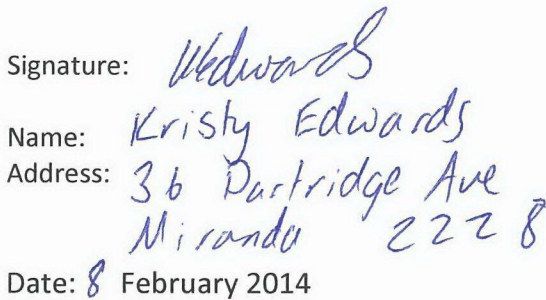 Signature: KEdwards
Name: Kristy Edwards
Address: 36 Partridge Ave
Miranda 2228
Date: 8 February 2014